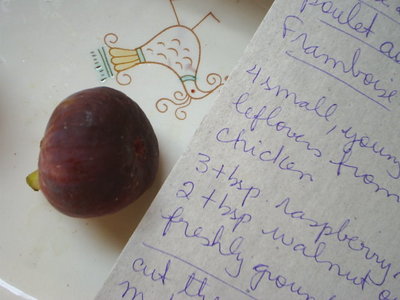 poulet au
Framboise
4 small, young
leftovers from
chicken
3 tbsp. raspberry
2 tbsp walnut o
freshly groun
cut the